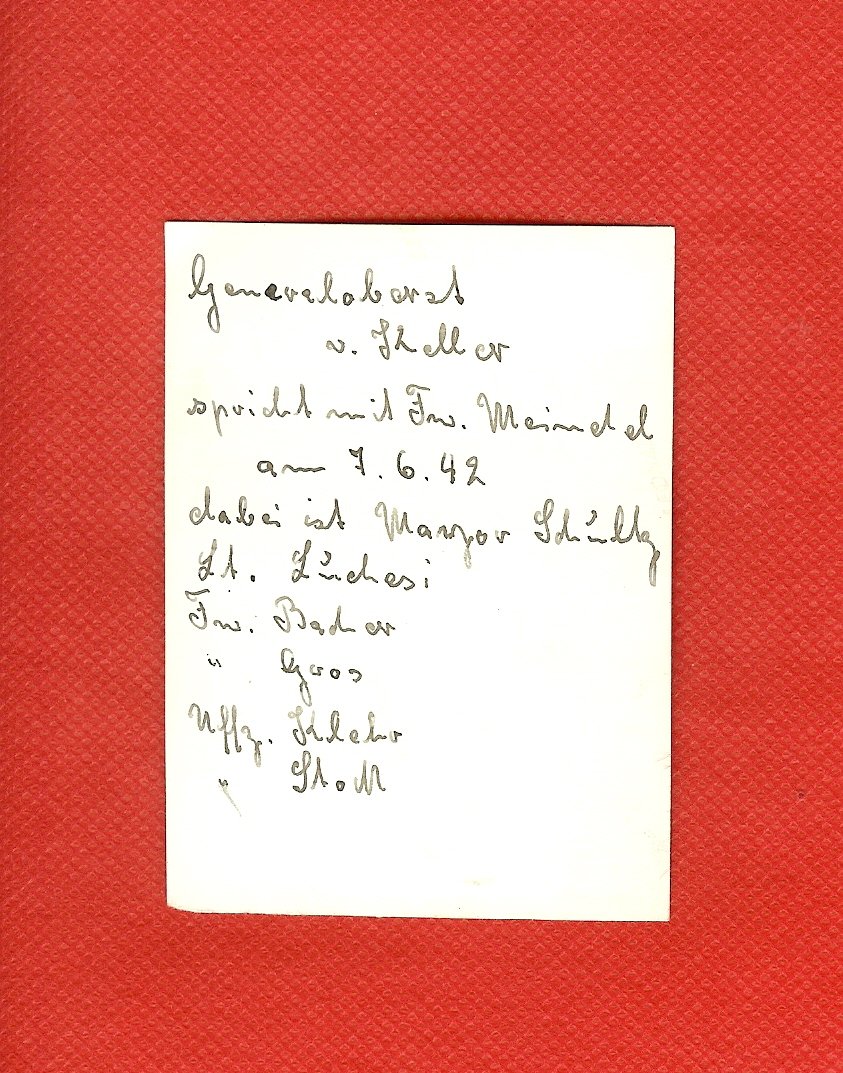 Generaloberst
v. Keller
spricht mit Fw. Meindel
am 7.6.42
dabei ist Maryor Schültz
Lt. Lüchesi
Fw. Bacher
" Gros
Uffz. Klehr
" Stoll